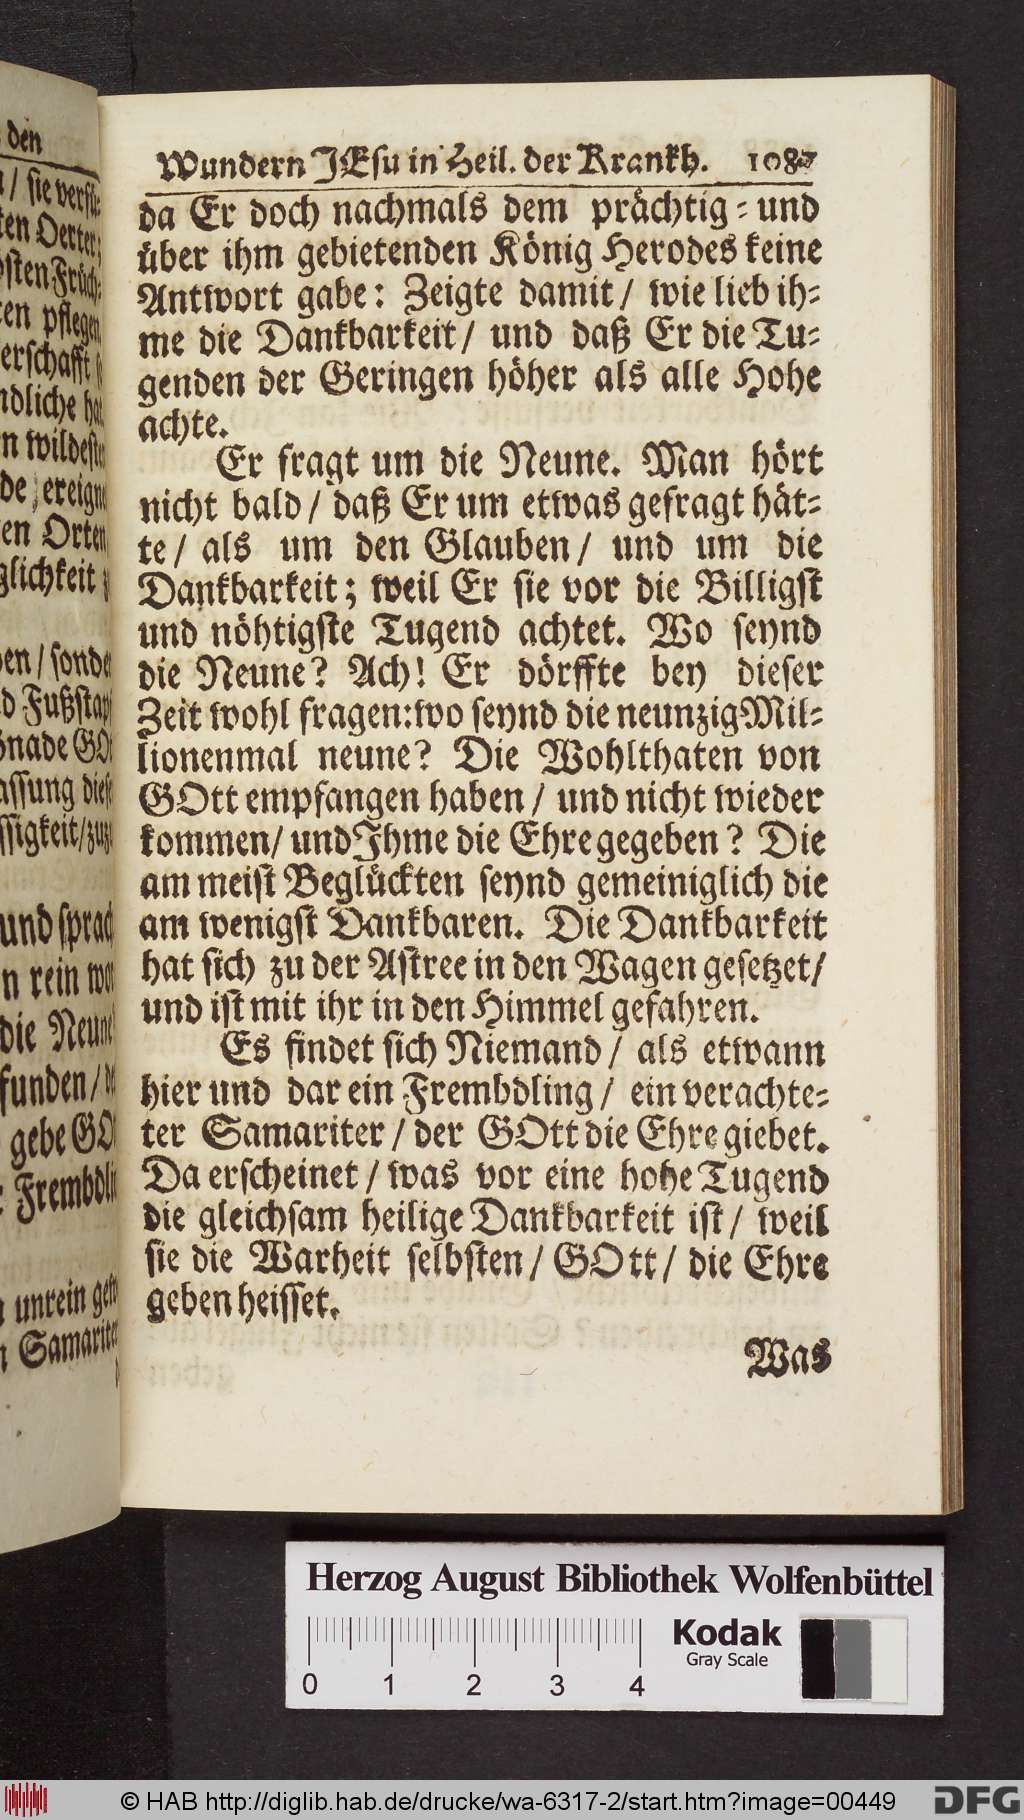 den
/ sie versü-
ten Oerter;
sten Früch-
ten pflegen
erschafft
ndliche
n wildesten
de, ereign
en Orten
glichkeit
en / sonde
d Fußstap
GO
assung diese
ssigkeit/zuz
und sprach
n rein wor
die Neune
funden /
gebe GO
Frembdli
unrein
Samariter
Wundern JEsu in Heil. der Krankh. 1087
da Er doch nachmals dem prächtig- und
über ihm gebietenden König Herodes keine
Antwort gabe: Zeigte damit/ wie lieb ih-
me die Dankbarkeit/ und daß Er die Tu-
genden der Geringen höher als alle Hohe
achte.
Er fragt um die Neune. Man hört
nicht bald / daß Er um etwas gefragt hät-
te / als um den Glauben / und um die
Dankbarkeit; weil Er sie vor die Billigst
und nöhtigste Tugend achtet. Wo seynd
die Neune? Ach! Er dörffte bey dieser
Zeit wohl fragen: wo seynd die neunzig Mil-
lionenmal neune? Die Wohlthaten von
GOtt empfangen haben / und nicht wieder
kommen/ und Ihme die Ehre gegeben? Die
am meist Beglückten seynd gemeiniglich die
am wenigst Dankbaren. Die Dankbarkeit
hat sich zu der Astree in den Wagen gesetzet/
und ist mit ihr in den Himmel gefahren.
Es findet sich Niemand / als etwann
hier und dar ein Frembdling / ein verachte-
ter Samariter / der GOtt die Ehre giebet.
Da erscheinet / was vor eine hohe Tugend
die gleichsam heilige Dankbarkeit ist / weil
sie die Warheit selbsten / GOtt / die Ehre
geben heisset.
Was
Herzog August Bibliothek Wolfenbüttel
0 1 2 3 4
Kodak
Gray Scale
© HAB http://diglib.hab.de/drucke/wa-6317-2/start.htm?image=00449
DFG